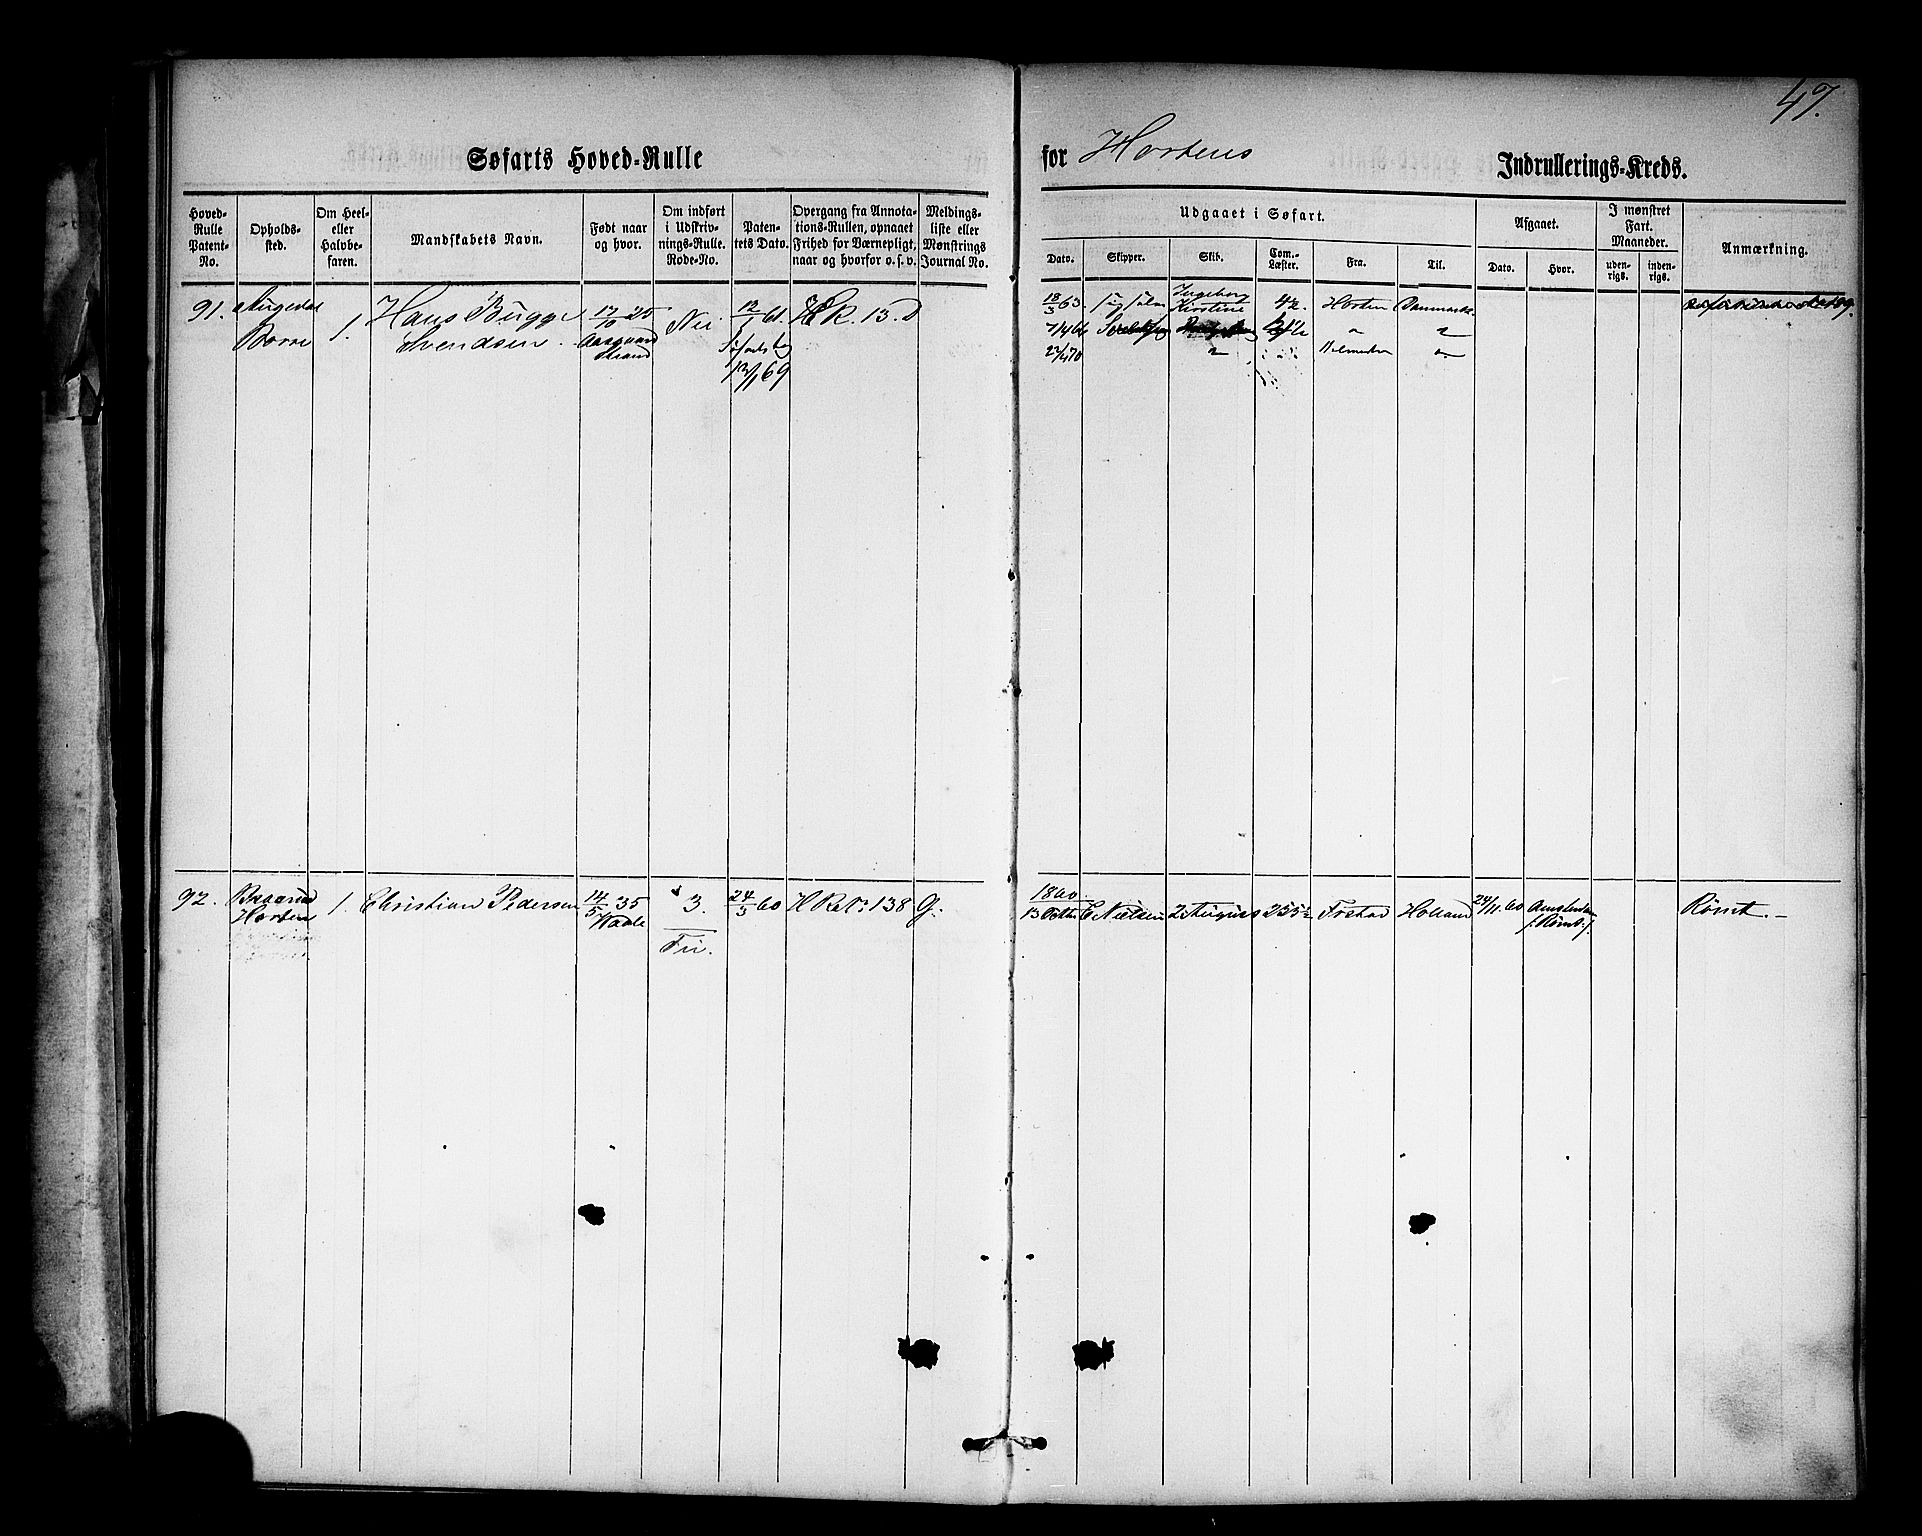 47.
Søfarts Hoved-Rulle
for Hortens Indrullerings-Kreds.
Hoved-Rulle Patent-No.
Opholds-sted.
Om Heel- eller Halvbe-faren.
Mandskabets Navn.
Født naar og hvor.
Om indført i Udskriv-nings-Rulle. Rode-No.
Paten-tets Dato.
Overgang fra Annota-tions-Rullen, opnaaet Frihed for Værnepligt, naar og hvorfor o. s. v.
Meldings-liste eller Mønstrings Journal No.
Udgaaet i Søfart.
Dato.
Skipper.
Skib.
Com.-Læster.
Fra.
Til.
Afgaaet.
Dato.
Hvor.
I mønstret Fart. Maaneder.
uden-rigs.
inden-rigs.
Anmærkning.
91.
Borre
1.
Hans Bugge
Svendsen.
25
Aasgaard
strand
12/1 61.
13/1 69
H.R. 13.
18/3 63
Ingeborg
Kirstine
Horten
Danmark
7/4 64
22/4 70
Holmestr
92.
Horten
1.
Christian Pedersen
14/5 35
Vaale
3.
Fri.
24/3 60
H R No 138
G.
1860
13 Octbr
C Nielsen
2 Augusts
255½
Frstad
Holland
24/11. 60
Amsterdam
/: Rømt :/
Rømt. -